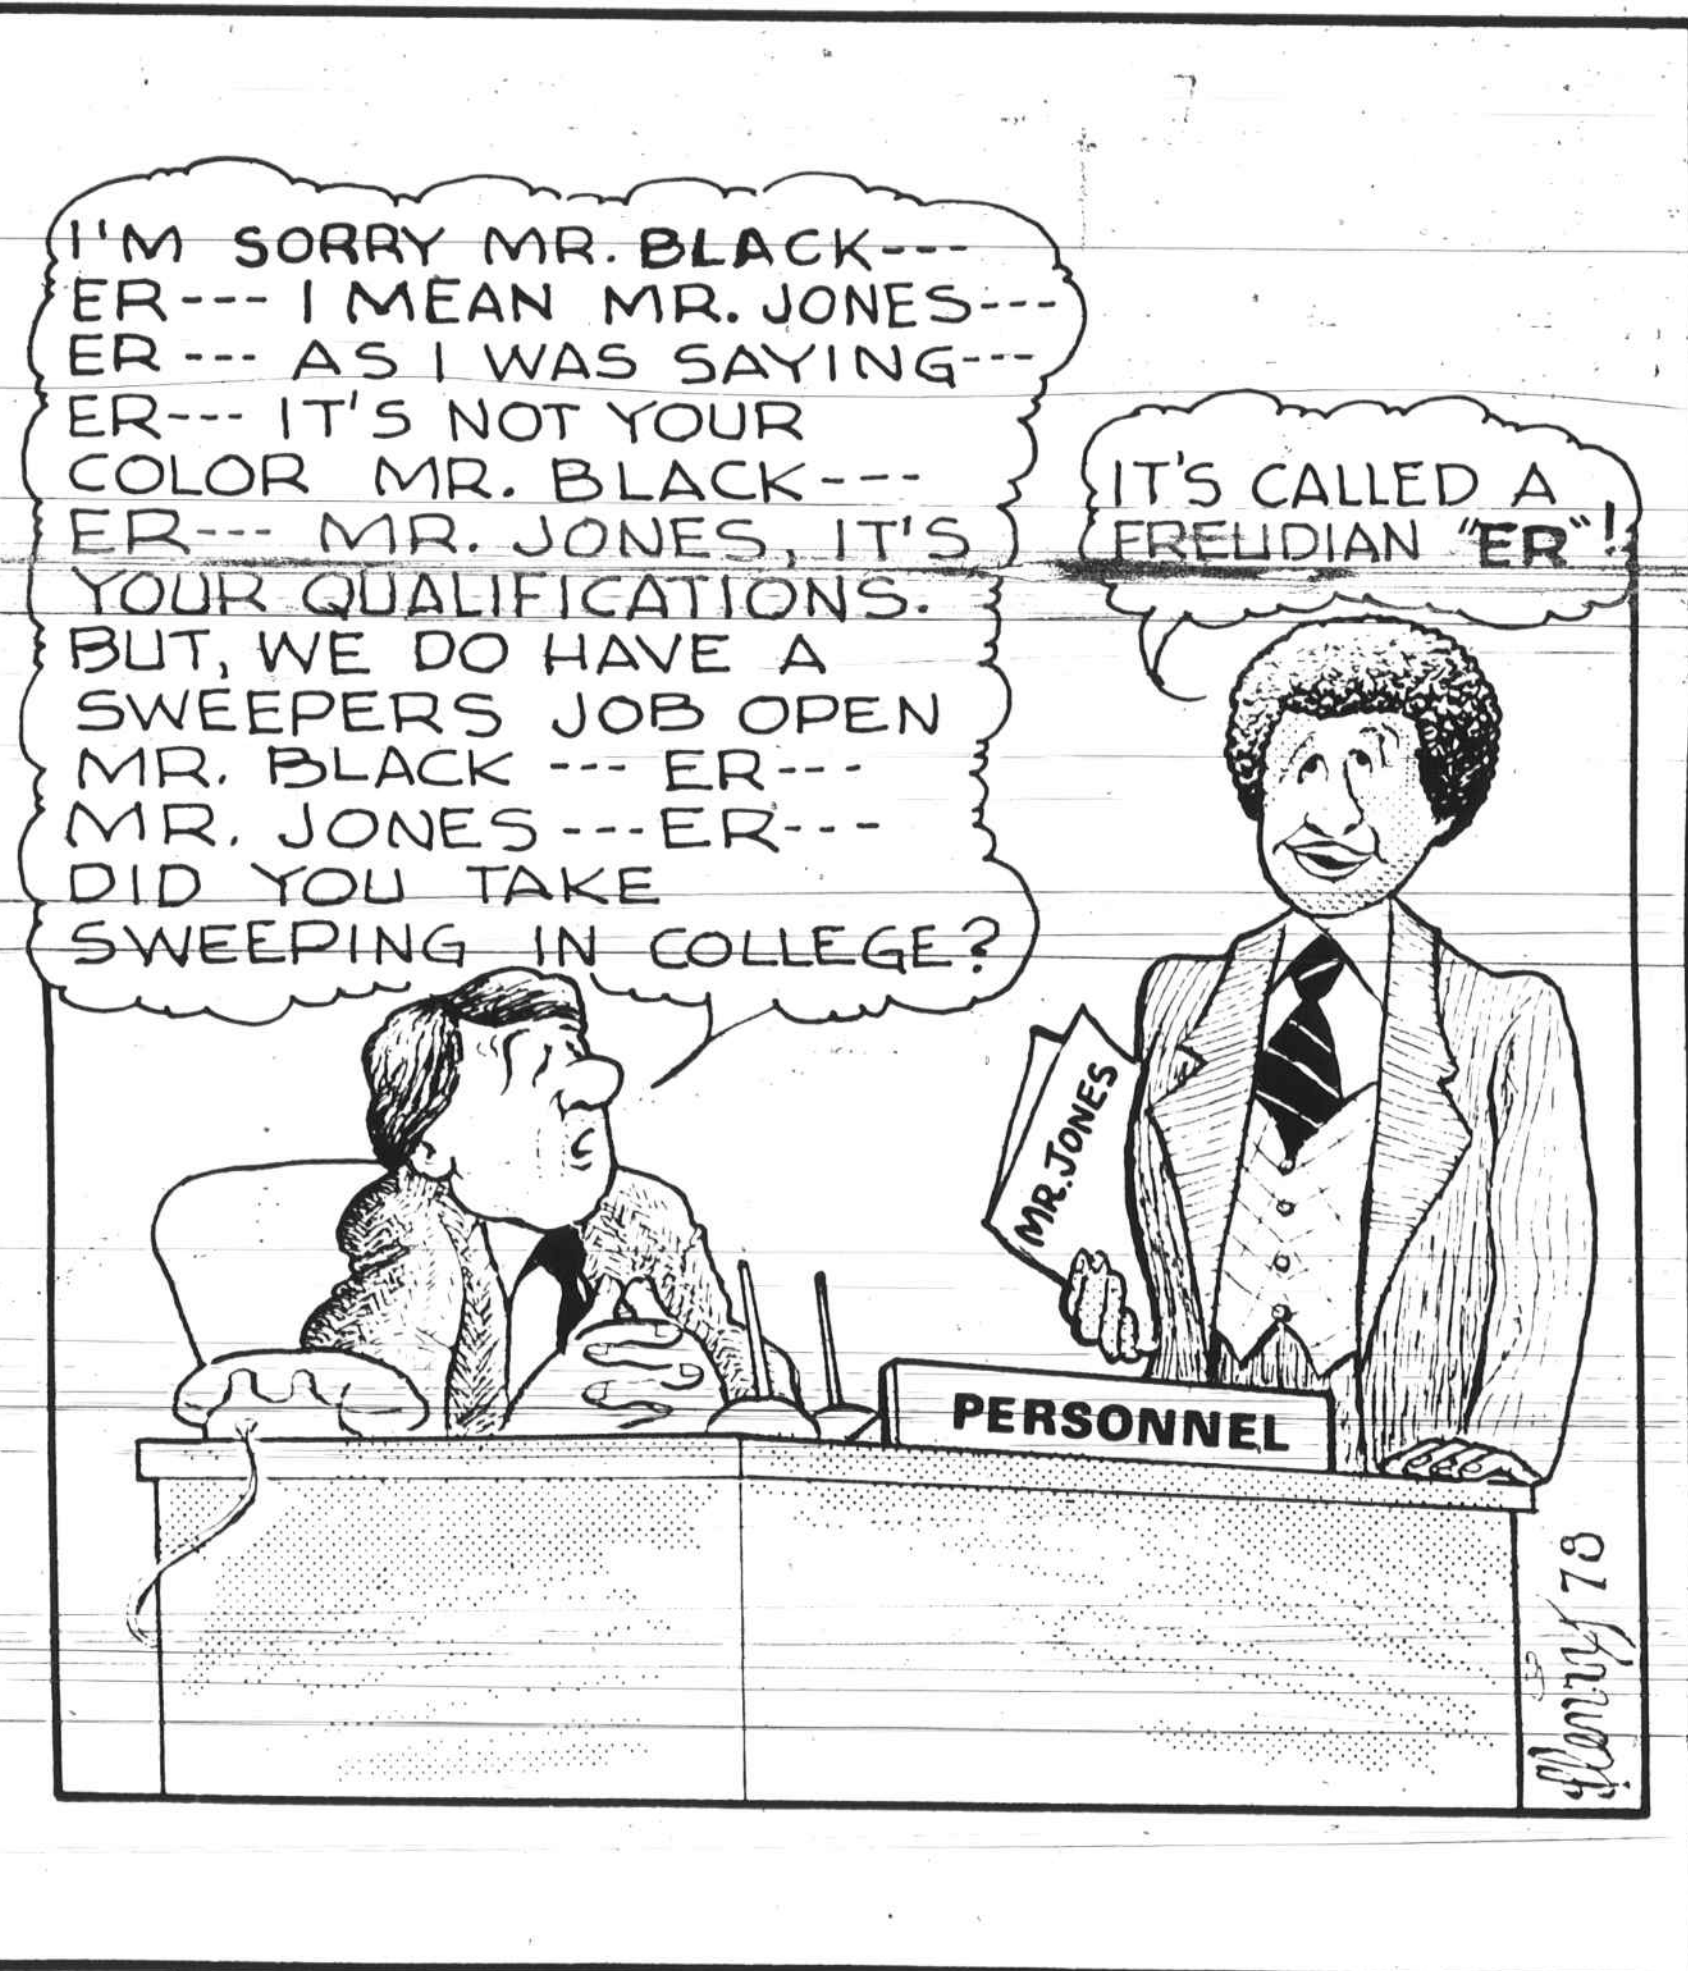 I'M SORRY MR. BLACK---
ER--- I MEAN MR. JONES---
ER --- AS I WAS SAYING---
ER--- IT'S NOT YOUR
COLOR MR. BLACK---
ER--- MR. JONES, IT'S
YOUR QUALIFICATIONS.
BUT, WE DO HAVE A
SWEEPERS JOB OPEN
MR. BLACK --- ER---
MR. JONES --- ER---
DID YOU TAKE
SWEEPING IN COLLEGE?
IT'S CALLED A
FREUDIAN "ER"!
MR. JONES
PERSONNEL
Henry 78